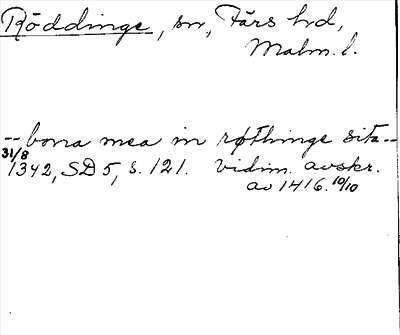 Röddinge, sn, Färs hd,
Malm. l.
-- bona mea in røthinge sita --
31/8
1342, SD 5, s. 121. vidim. avskr.
av 1416. 10/10